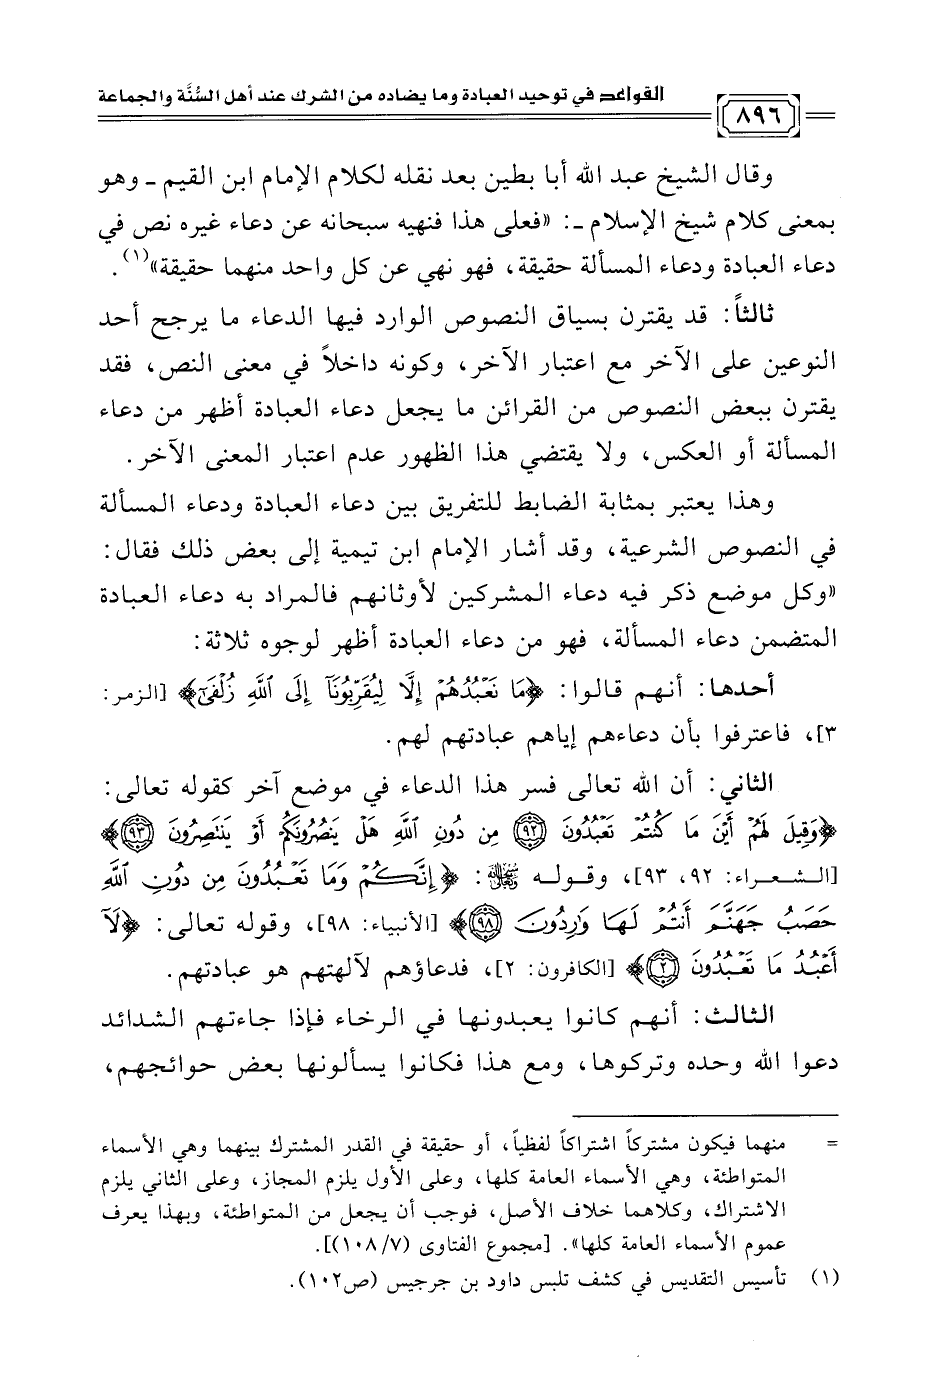 القواعد في توحيد العبادة وما يضاده من الشرك عند أهل السُّنَّة والجماعة
٨٩٦
وقال الشيخ عبد الله أبا بطين بعد نقله لكلام الإمام ابن القيم ـ وهو
بمعنى كلام شيخ الإسلام ـ: «فعلى هذا فنهيه سبحانه عن دعاء غيره نص في
دعاء العبادة ودعاء المسألة حقيقة، فهو نهي عن كل واحد منهما حقيقة»(١).
ثالثاً: قد يقترن بسياق النصوص الوارد فيها الدعاء ما يرجح أحد
النوعين على الآخر مع اعتبار الآخر، وكونه داخلاً في معنى النص، فقد
يقترن ببعض النصوص من القرائن ما يجعل دعاء العبادة أظهر من دعاء
المسألة أو العكس، ولا يقتضي هذا الظهور عدم اعتبار المعنى الآخر.
وهذا يعتبر بمثابة الضابط للتفريق بين دعاء العبادة ودعاء المسألة
في النصوص الشرعية، وقد أشار الإمام ابن تيمية إلى بعض ذلك فقال:
«وكل موضع ذكر فيه دعاء المشركين لأوثانهم فالمراد به دعاء العبادة
المتضمن دعاء المسألة، فهو من دعاء العبادة أظهر لوجوه ثلاثة:
أحدها: أنهم قالوا: ﴿مَا نَعْبُدُهُمْ إِلَّا لِيُقَرِّبُونَآ إِلَى ٱللَّهِ زُلْفَىٰٓ﴾ [الزمر:
٣]، فاعترفوا بأن دعاءهم إياهم عبادتهم لهم.
الثاني: أن الله تعالى فسر هذا الدعاء في موضع آخر كقوله تعالى:
﴿وَقِيلَ لَهُمْ أَيْنَ مَا كُنتُمْ تَعْبُدُونَ ﴿٩٢﴾ مِن دُونِ ٱللَّهِ هَلْ يَنصُرُونَكُمْ أَوْ يَنتَصِرُونَ ﴿٩٣﴾﴾
[الشعراء: ٩٢، ٩٣]، وقوله ﷻ: ﴿إِنَّكُمْ وَمَا تَعْبُدُونَ مِن دُونِ ٱللَّهِ
حَصَبُ جَهَنَّمَ أَنتُمْ لَهَا وَٰرِدُونَ ﴿٩٨﴾﴾ [الأنبياء: ٩٨]، وقوله تعالى: ﴿لَآ
أَعْبُدُ مَا تَعْبُدُونَ ﴿٢﴾﴾ [الكافرون: ٢]، فدعاؤهم لآلهتهم هو عبادتهم.
الثالث: أنهم كانوا يعبدونها في الرخاء فإذا جاءتهم الشدائد
دعوا الله وحده وتركوها، ومع هذا فكانوا يسألونها بعض حوائجهم،
= منهما فيكون مشتركاً اشتراكاً لفظياً، أو حقيقة في القدر المشترك بينهما وهي الأسماء
المتواطئة، وهي الأسماء العامة كلها، وعلى الأول يلزم المجاز، وعلى الثاني يلزم
الاشتراك، وكلاهما خلاف الأصل، فوجب أن يجعل من المتواطئة، وبهذا يعرف
عموم الأسماء العامة كلها». [مجموع الفتاوى (٧/ ١٠٨)].
(١) تأسيس التقديس في كشف تلبس داود بن جرجيس (ص١٠٢).